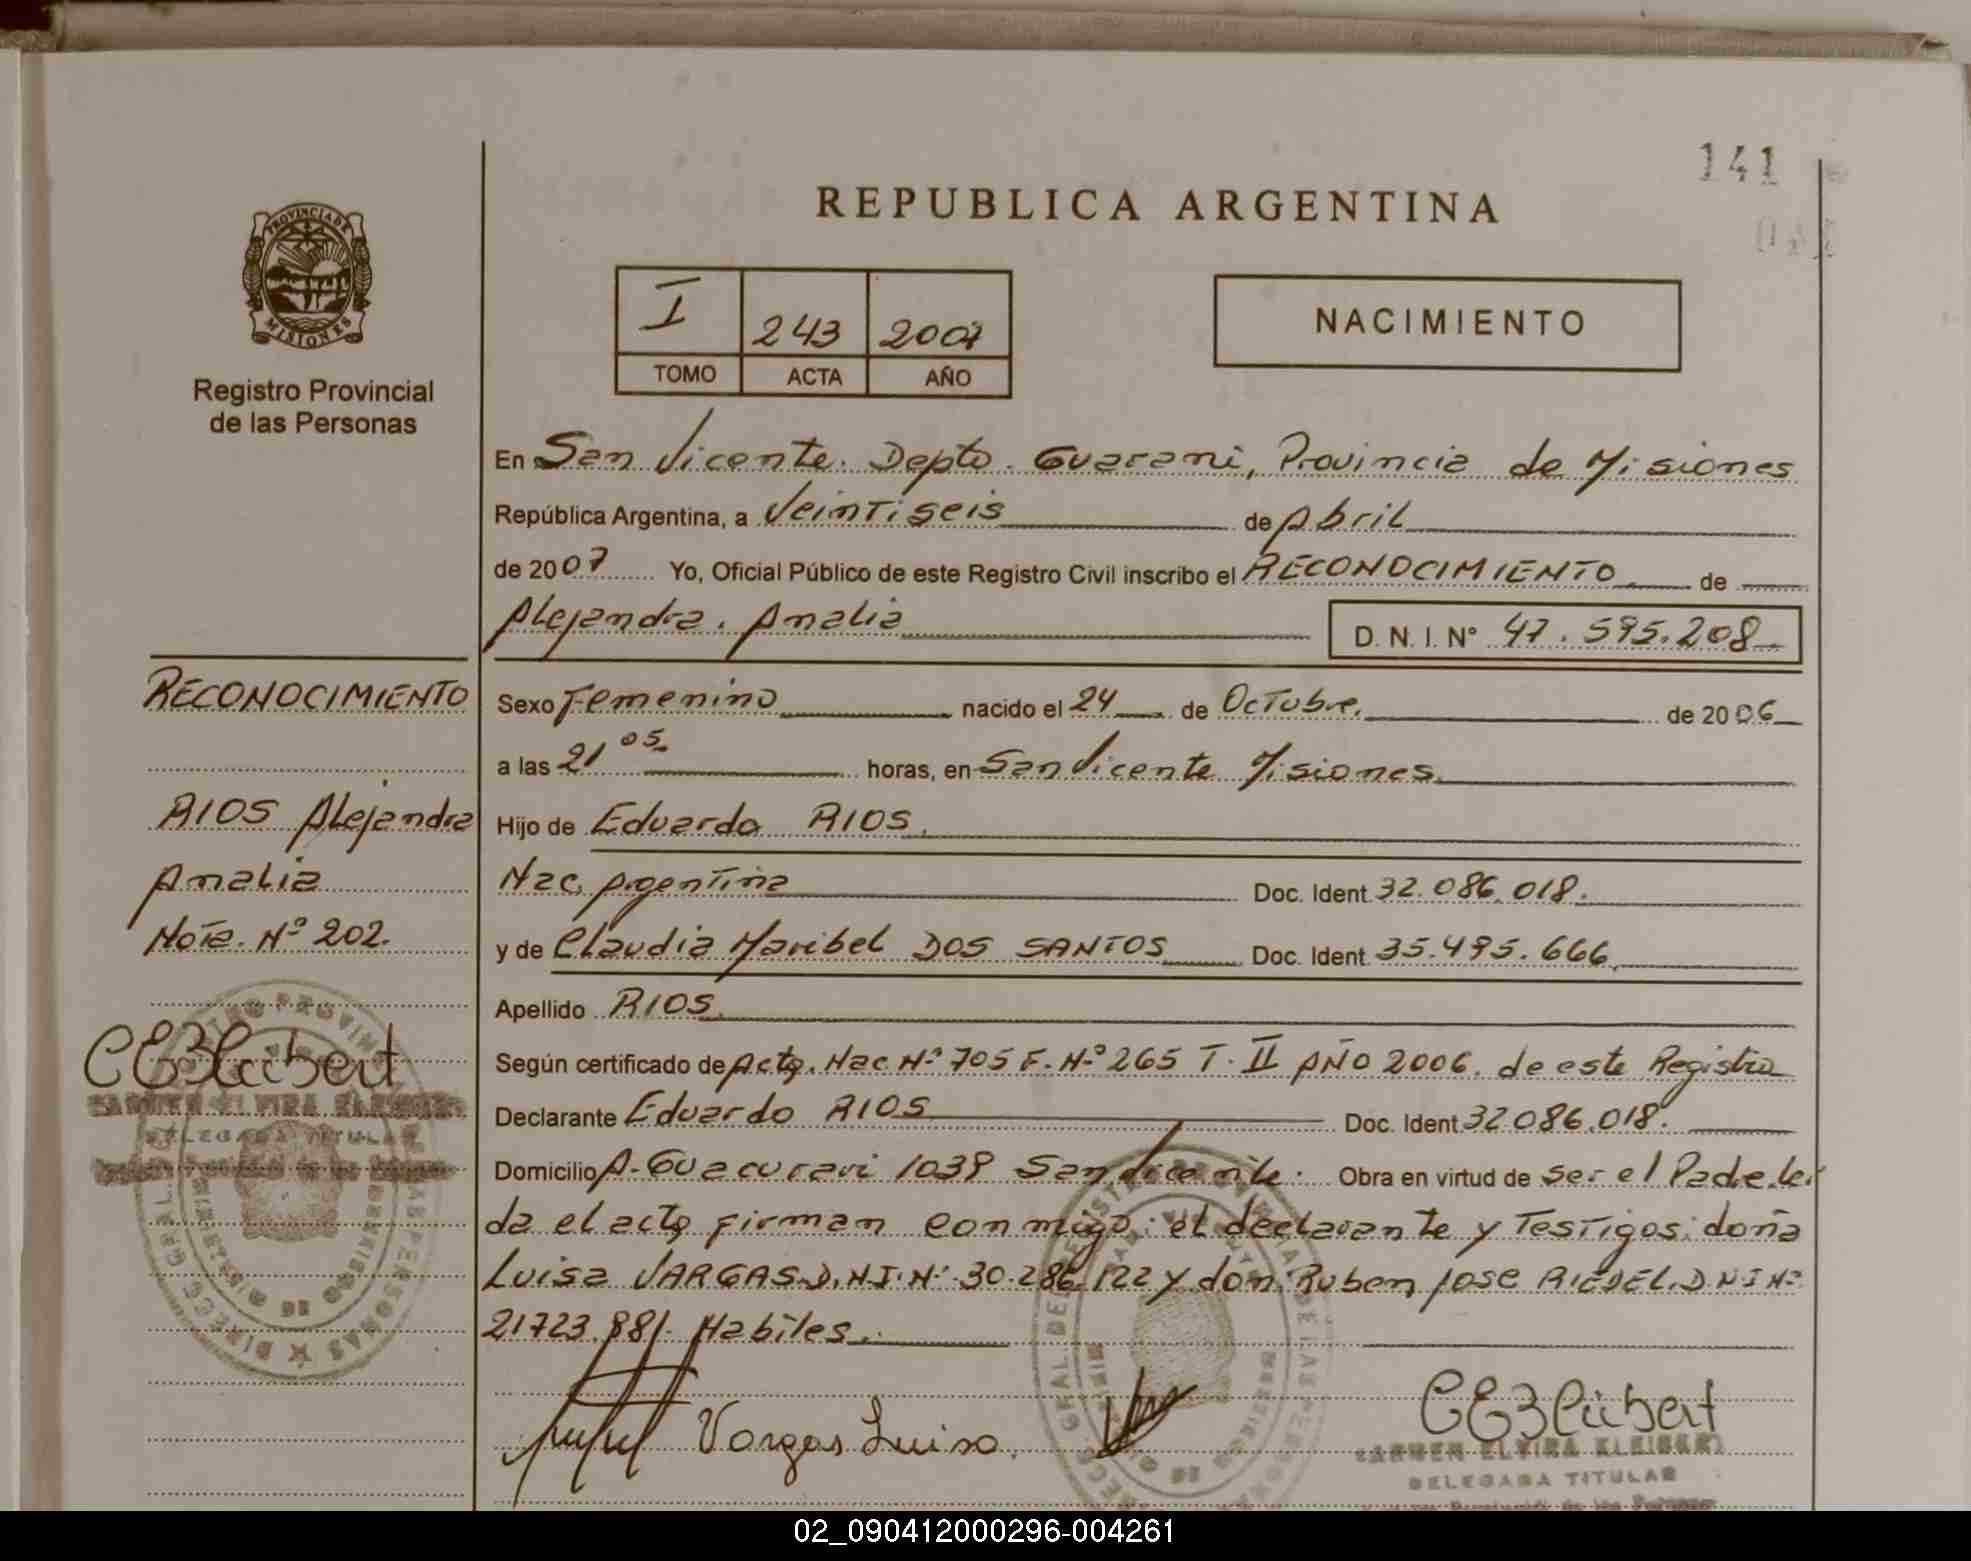 141
REPUBLICA ARGENTINA
PROVINCIA DE
MISIONES
Registro Provincial
de las Personas
I 243 2007
TOMO ACTA AÑO
NACIMIENTO
En San Vicente. Depto. Guarani, Provincia de Misiones
República Argentina, a Veintiseis de Abril
de 2007 Yo, Oficial Público de este Registro Civil inscribo el RECONOCIMIENTO de
Alejandra. Analia D. N. I. Nº 47.595.208
RECONOCIMIENTO
RIOS Alejandra
Analia
Nota. Nº 202.
CARMEN ELVIRA KLEIBERT
DELEGADA TITULAR
Sexo Femenino nacido el 24 de Octubre. de 2006
a las 21 05 horas, en San Vicente Misiones
Hijo de Eduardo RIOS
Nac. Argentina Doc. Ident. 32.086.018.
y de Claudia Maribel DOS SANTOS Doc. Ident. 35.495.666
Apellido RIOS
Según certificado de Acta. Nac Nº 705 F. Nº 265 T. II AÑO 2006. de este Registro
Declarante Eduardo RIOS Doc. Ident. 32086.018.
Domicilio A. Guacurari 1039 San Vicente. Obra en virtud de ser el Padre. lei
da el acta firman conmigo: el declarante y Testigos: doña
Luisa VARGAS D.N.I. Nº 30.286.122 y don Ruben Jose RIEDEL. D.N.I Nº
21723.981. Habiles.
Vargas Luisa
CARMEN ELVIRA KLEIBERT
DELEGADA TITULAR
02_090412000296-004261